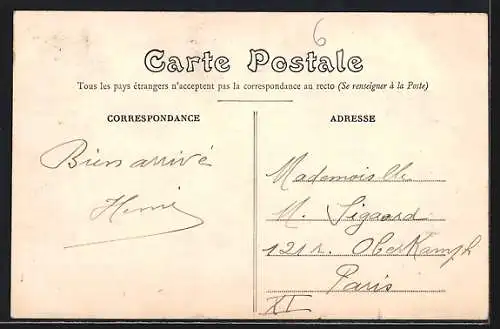 6
Carte Postale
Tous les pays étrangers n'acceptent pas la correspondance au recto (Se renseigner à la Poste)
CORRESPONDANCE
Bien arrivé
Henri
ADRESSE
Mademoiselle
M. Sigaard
121 r. Oberkampf
Paris
XI